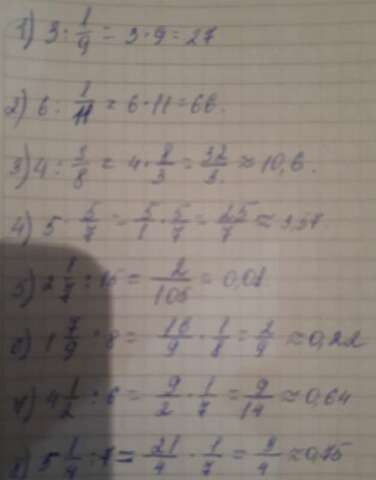 1) 3 : 1/9 = 3 · 9 = 27
2) 6 : 1/11 = 6 · 11 = 66.
3) 4 : 3/8 = 4 · 8/3 = 32/3 ≈ 10,6.
4) 5 · 5/7 = 5/1 · 5/7 = 25/7 ≈ 3,57.
5) 2 : 15 = 2/105 = 0,01
6) 1 7/9 : 8 = 16/9 · 1/8 = 2/9 ≈ 0,22
7) 4 1/2 : 6 = 9/2 · 1/7 = 9/14 ≈ 0,64
8) 5 1/4 : 7 = 21/4 · 1/7 = 3/4 ≈ 0,75